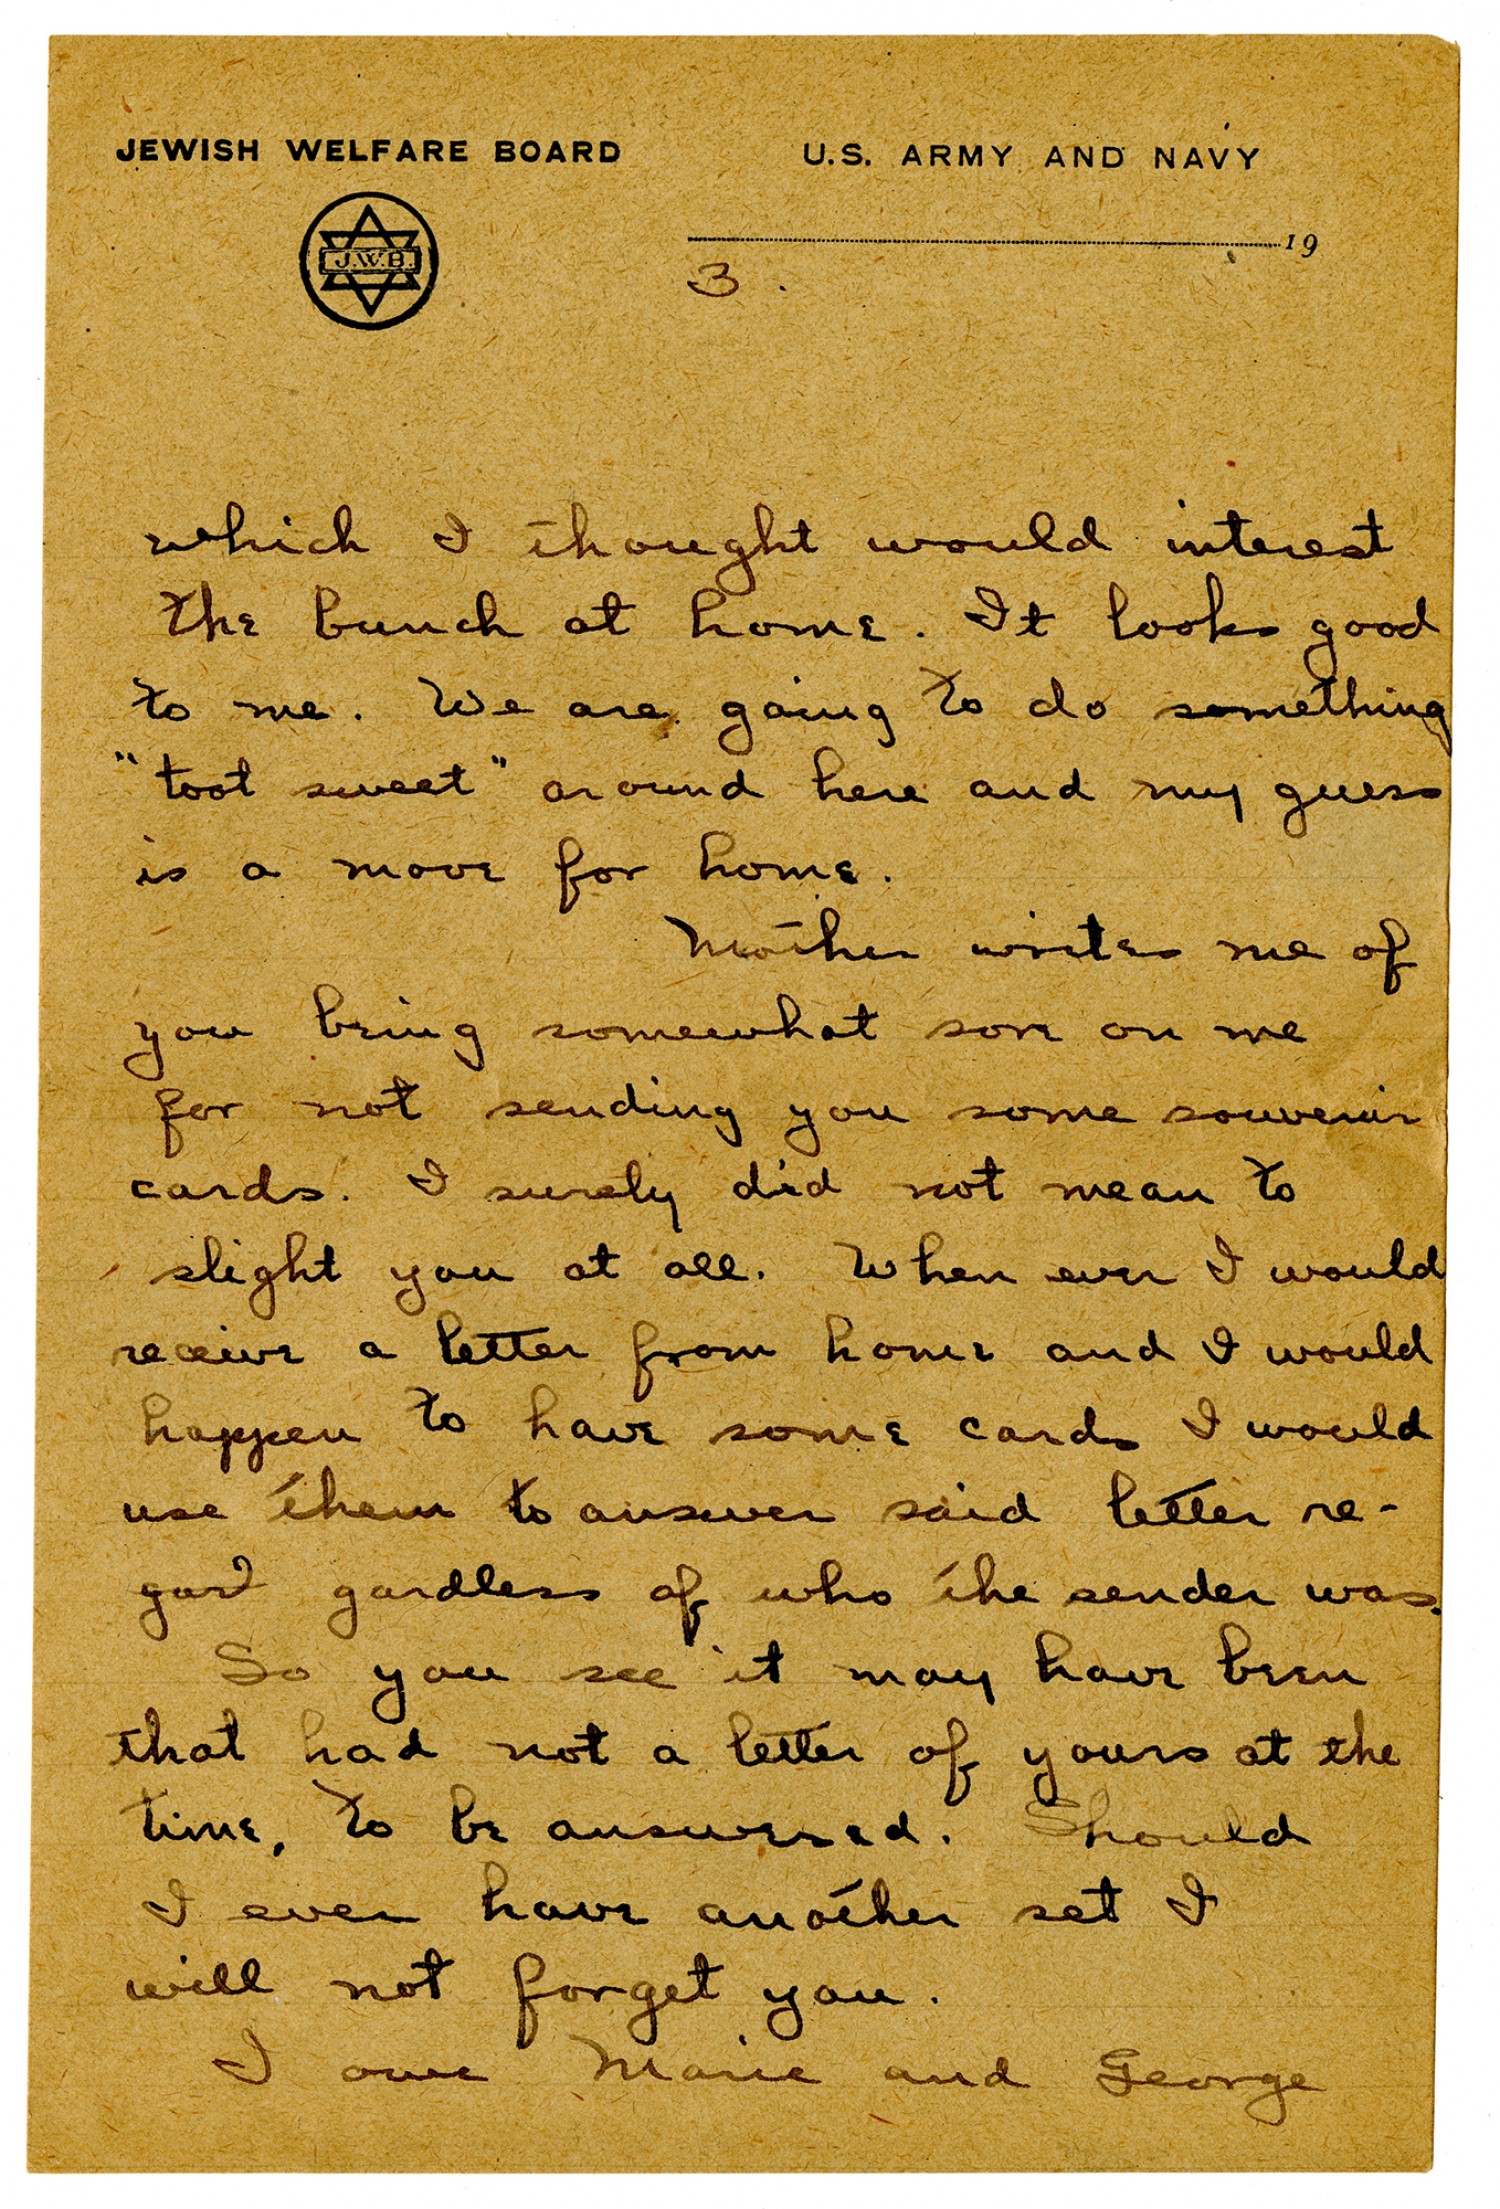 JEWISH WELFARE BOARD
U.S. ARMY AND NAVY
J.W.B.
19
3.
which I thought would interest
the bunch at home. It looks good
to me. We are going to do something
"toot sweet" around here and my guess
is a move for home.
Mother writes me of
you being somewhat sore on me
for not sending you some souvenir
cards. I surely did not mean to
slight you at all. When ever I would
receive a letter from home and I would
happen to have some cards I would
use them to answer said letter re-
gard gardless of who the sender was.
So you see it may have been
that had not a letter of yours at the
time, to be answered. Should
I ever have another set I
will not forget you.
I owe Marie and George